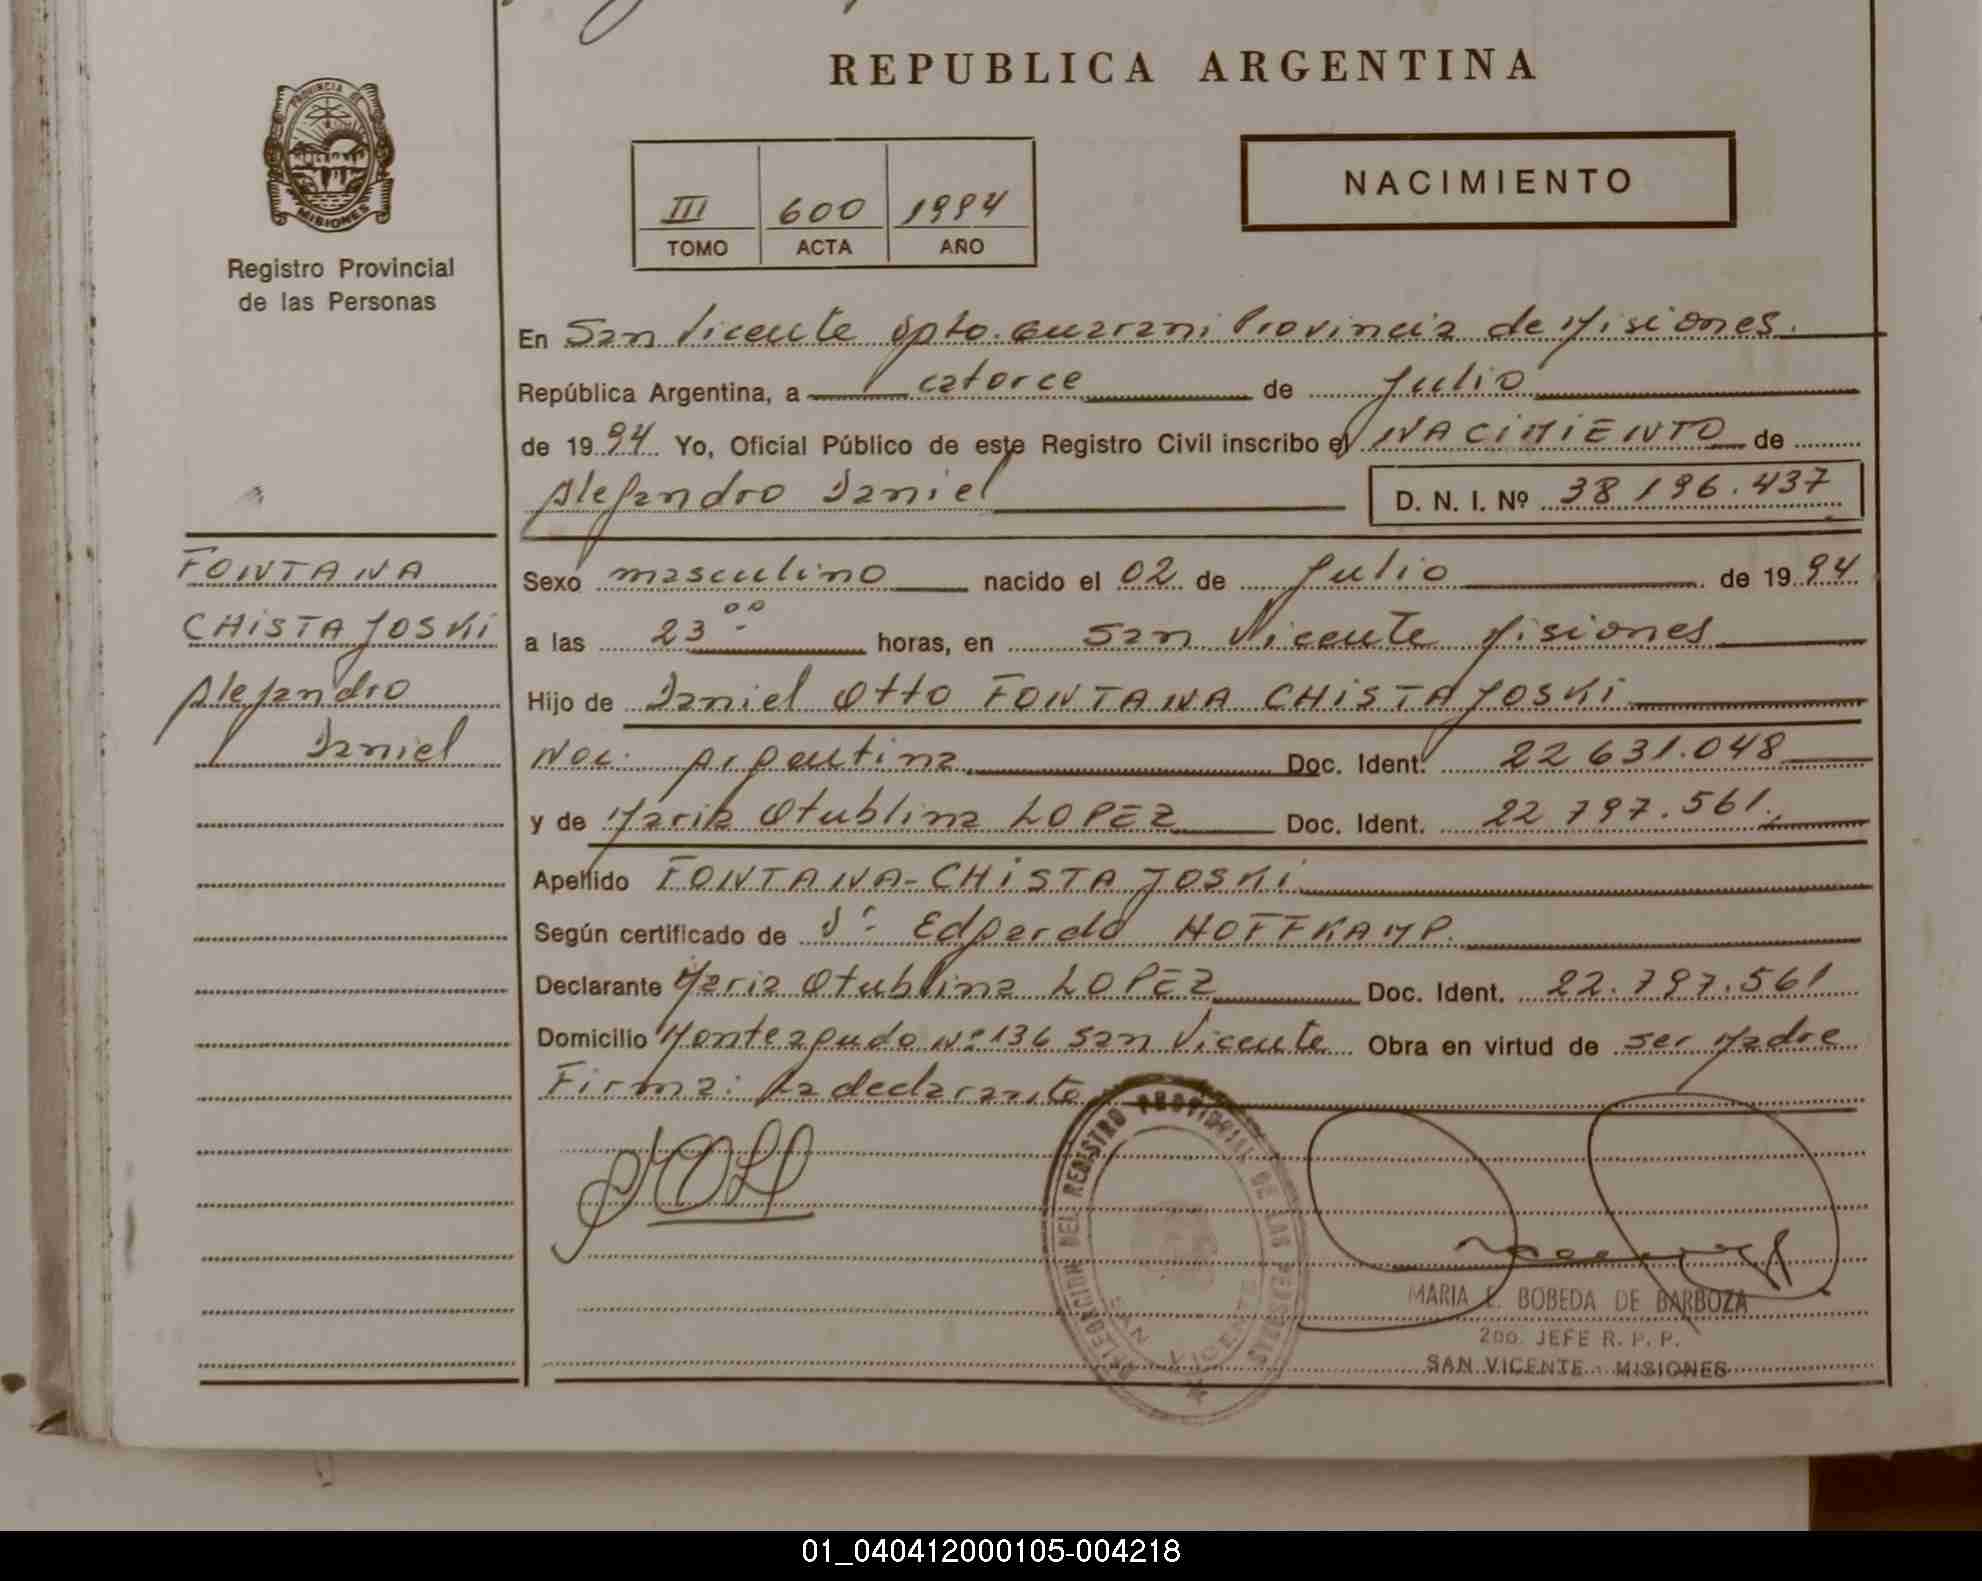 REPUBLICA ARGENTINA
PROVINCIA DE
MISIONES
Registro Provincial
de las Personas
III 600 1994
TOMO ACTA AÑO
NACIMIENTO
En San Vicente Dpto. Guarani Provincia de Misiones.
República Argentina, a catorce de Julio
de 1994 Yo, Oficial Público de este Registro Civil inscribo el NACIMIENTO de
Alejandro Daniel D. N. I. Nº 38 196.437
FONTANA
CHISTAJOSKI
Alejandro
Daniel
Sexo masculino nacido el 02 de Julio de 1994
a las 23 00 horas, en San Vicente Misiones
Hijo de Daniel Otto FONTANA CHISTAJOSKI
Nac. Argentina Doc. Ident. 22 631.048
y de Maria Otublina LOPEZ Doc. Ident. 22 797.561.
Apellido FONTANA-CHISTAJOSKI
Según certificado de Dr. Edgardo HOFFKAMP.
Declarante Maria Otublina LOPEZ Doc. Ident. 22.797.561
Domicilio Monteagudo Nº 136 San Vicente Obra en virtud de ser Madre
Firma: La declarante
DELEGACION DEL REGISTRO PROVINCIAL DE LAS PERSONAS
SAN VICENTE
MARIA E. BOBEDA DE BARBOZA
2DO. JEFE R. P. P.
SAN VICENTE - MISIONES
01_040412000105-004218